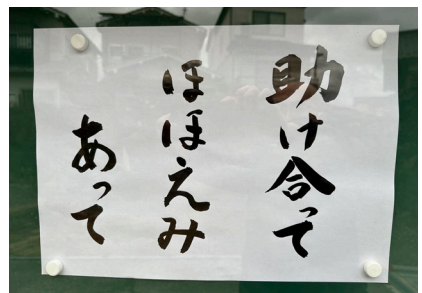 助け合って
ほほえみ
あって